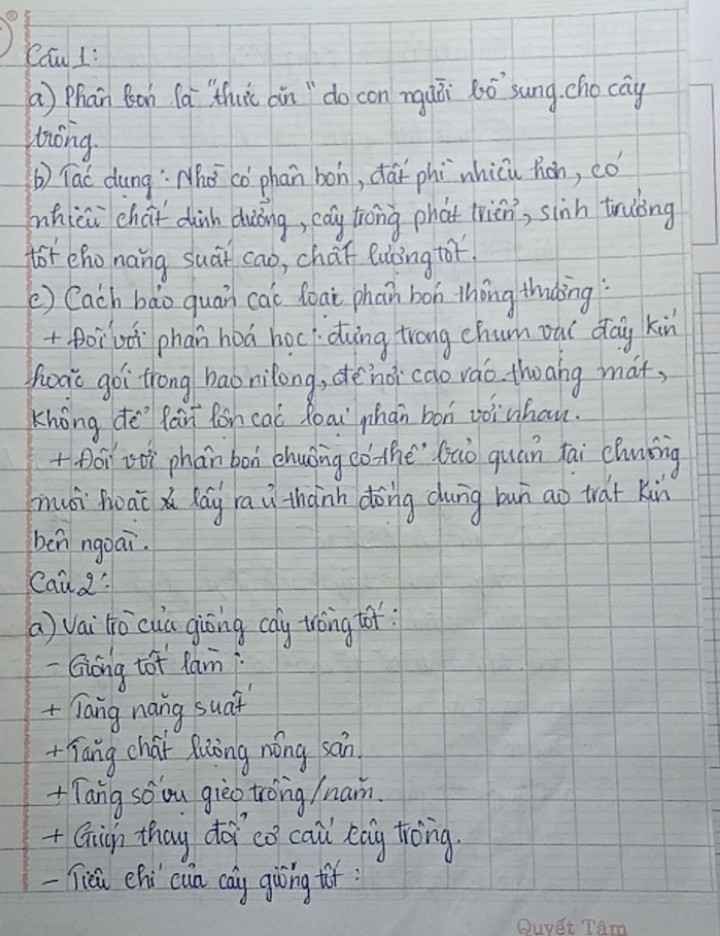 Câu 1:
a) Phân bón là "thức ăn" do con người bổ sung cho cây
trồng.
b) Tác dụng: Nhờ có phân bón, đất phì nhiêu hơn, có
nhiều chất dinh dưỡng, cây trồng phát triển, sinh trưởng
tốt cho năng suất cao, chất lượng tốt.
c) Cách bảo quản các loại phân bón thông thường:
+ Đối với phân hoá học: đựng trong chum vại đậy kín
hoặc gói trong bao nilong, để nơi cao ráo thoáng mát,
không để lẫn lộn các loại phân bón với nhau.
+ Đối với phân bón chuồng có thể bảo quản tại chuồng
nuôi hoặc lấy ra ủ thành đống dùng bùn ao trát kín
bên ngoài.
Câu 2:
a) Vai trò của giống cây trồng tốt:
- Giống tốt làm:
+ Tăng năng suất
+ Tăng chất lượng nông sản.
+ Tăng số vụ gieo trồng/năm.
+ Giúp thay đổi cơ cấu cây trồng.
- Tiêu chí của cây giống tốt:
Quyết Tâm